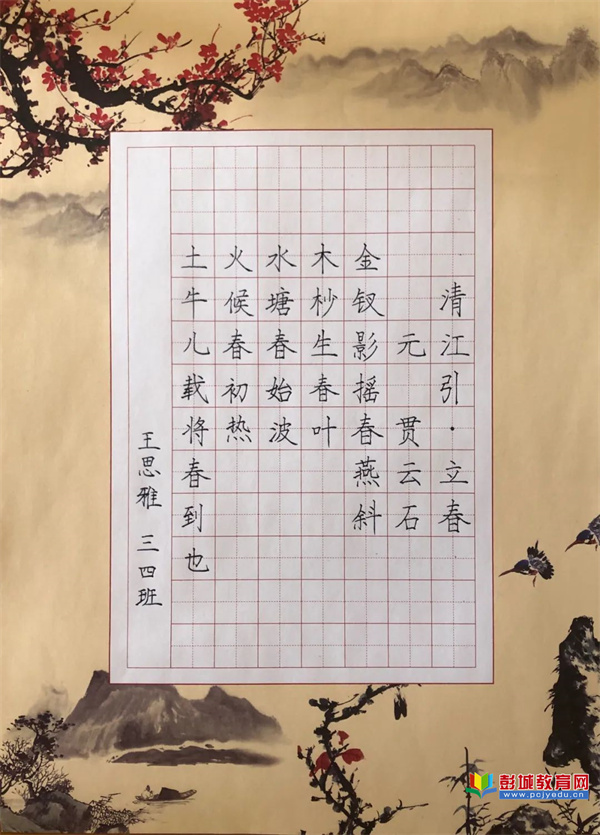 清江引·立春
元 贯云石
金钗影摇春燕斜
木杪生春叶
水塘春始波
火候春初热
土牛儿载将春到也
王思雅 三四班
彭城教育网
www.pcjyedu.cn